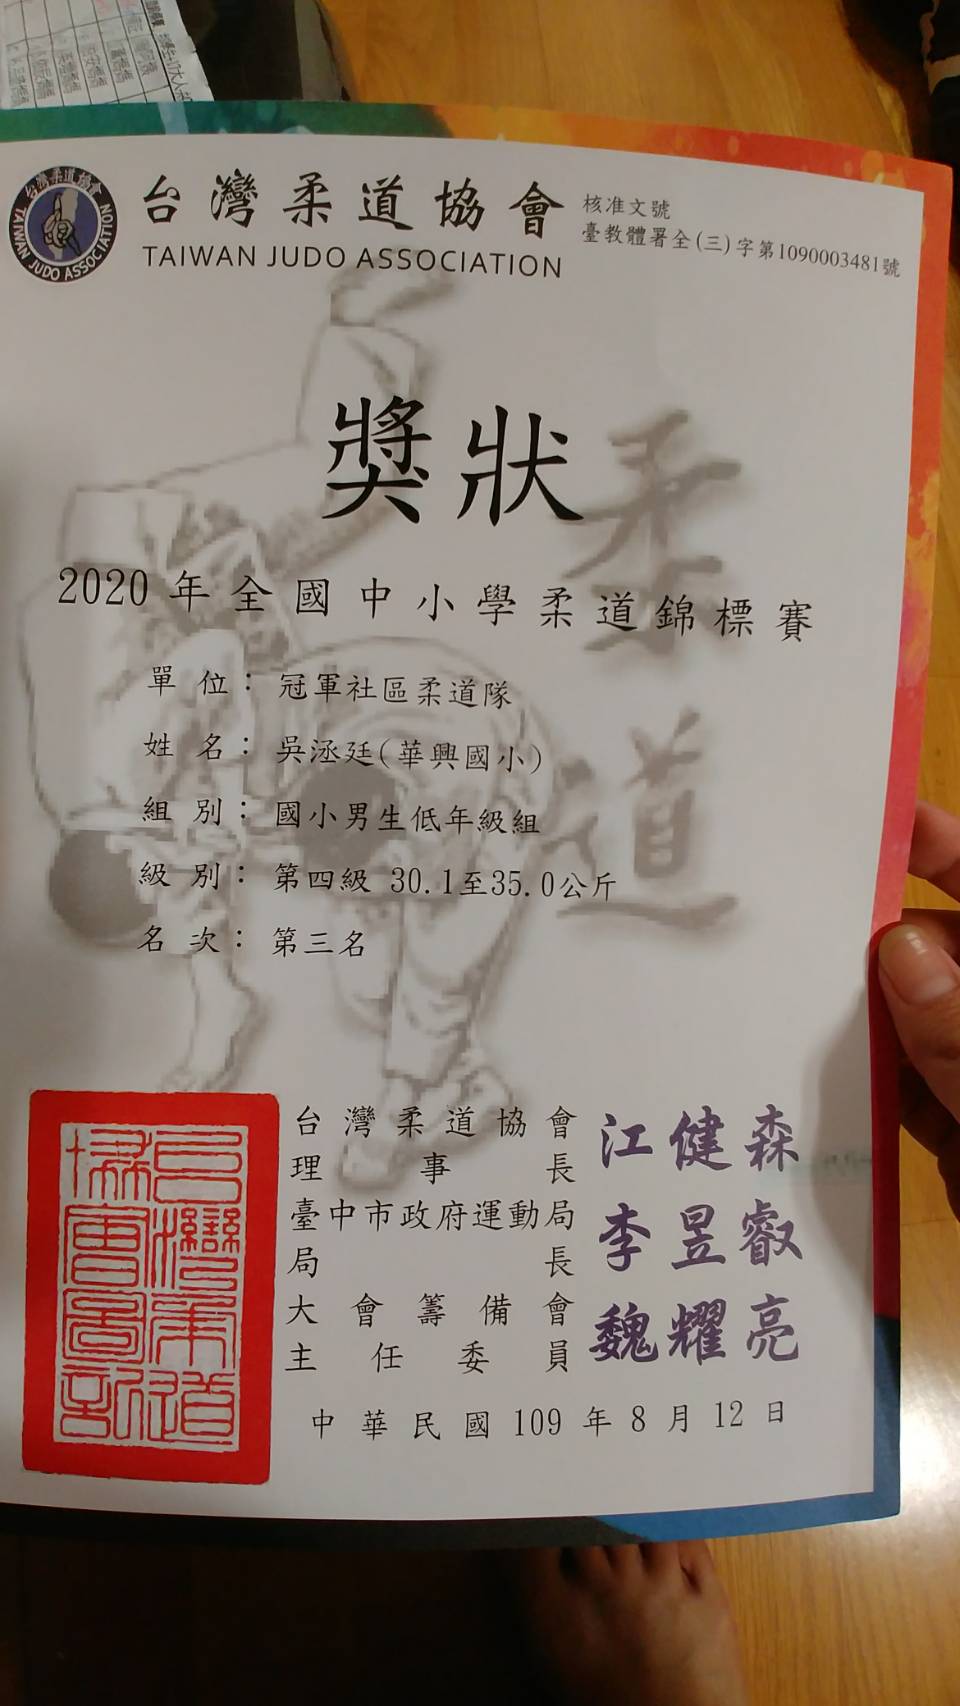 台灣柔道協會
TAIWAN JUDO ASSOCIATION
台灣柔道協會
TAIWAN JUDO ASSOCIATION
核准文號
臺教體署全(三)字第1090003481號
獎狀
柔道
2020年全國中小學柔道錦標賽
單位：冠軍社區柔道隊
姓名：吳洆廷(華興國小)
組別：國小男生低年級組
級別：第四級 30.1至35.0公斤
名次：第三名
台灣柔道協會
理事長
江健森
臺中市政府運動局
局長
李昱叡
大會籌備會
主任委員
魏耀亮
台灣柔道協會圖記
中華民國109年8月12日